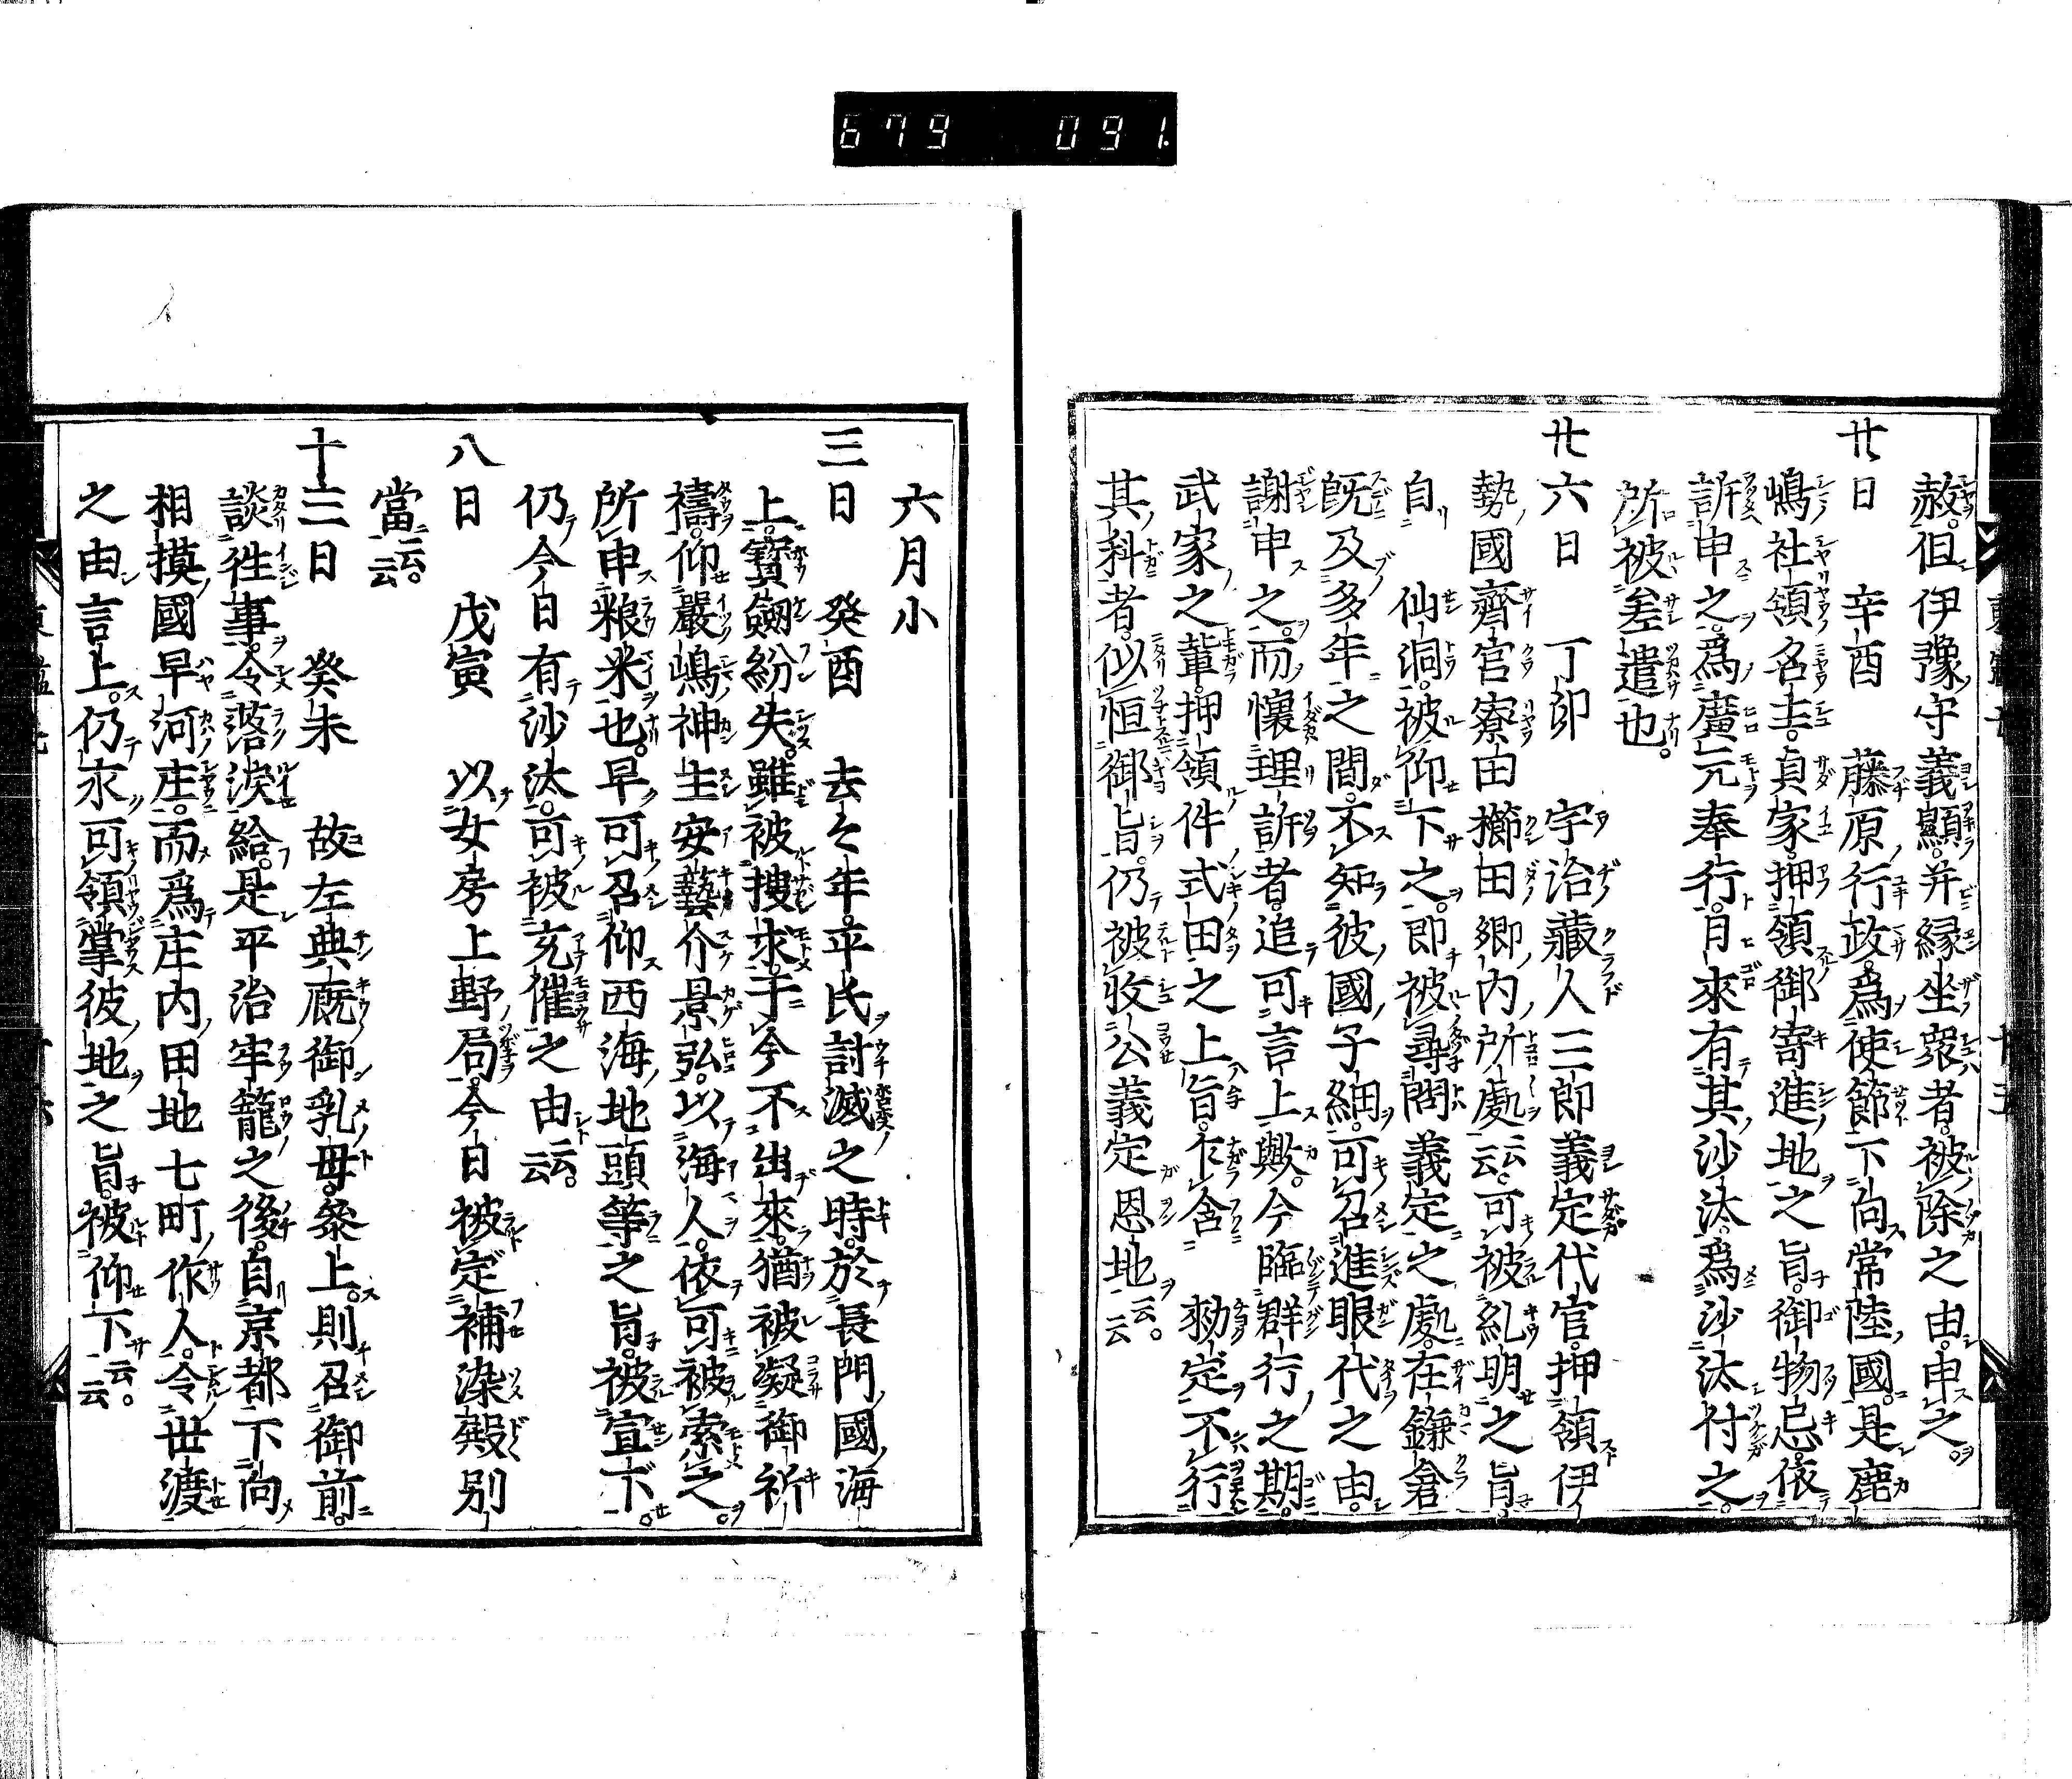 赦。但伊豫守義顯。并縁坐衆者。被除之由。申之。
廿日　辛酉　藤原行政。爲使節下向常陸國。是鹿
嶋社領名主。貞家。押領御寄進地之旨。御物忌。依
訴申之。爲廣元奉行。日來有其沙汰。爲沙汰付之。
所被差遣也。
廿六日　丁卯　宇治藏人三郎義定代官。押領伊
勢國齊宮寮田櫛田郷内所處云云。可被糺明之旨。
自　仙洞。被仰下之。即被尋問義定之處。在鎌倉
既及多年之間。不知彼國子細。可召進眼代之由。
謝申之。而懷理訴者。追可言上歟。今臨群行之期。
武家之輩。押領件式田之上旨。乍含　勅定。不行
其科者。似恒御旨。仍被收公義定恩地云云。
六月小
三日　癸酉　去々年。平氏討滅之時。於長門國海
上。寳劔紛失。雖被捜求。于今不出來。猶被凝御祈
禱。仰嚴嶋神主安藝介景弘。以海人。依可被索之。
所申粮米也。早可召仰西海地頭等之旨。被宣下。
仍今日有沙汰。可被充催之由云云。
八日　戊寅　以女房上野局。今日被定補染殿別
當云云。
十三日　癸未　故左典厩御乳母。參上。則召御前。
談徃事。令落涙給。是平治牢籠之後。自京都下向
相摸國早河庄。而爲庄内田地七町作人。令世渡
之由言上。仍永可領掌彼地之旨。被仰下云云。
679　091.